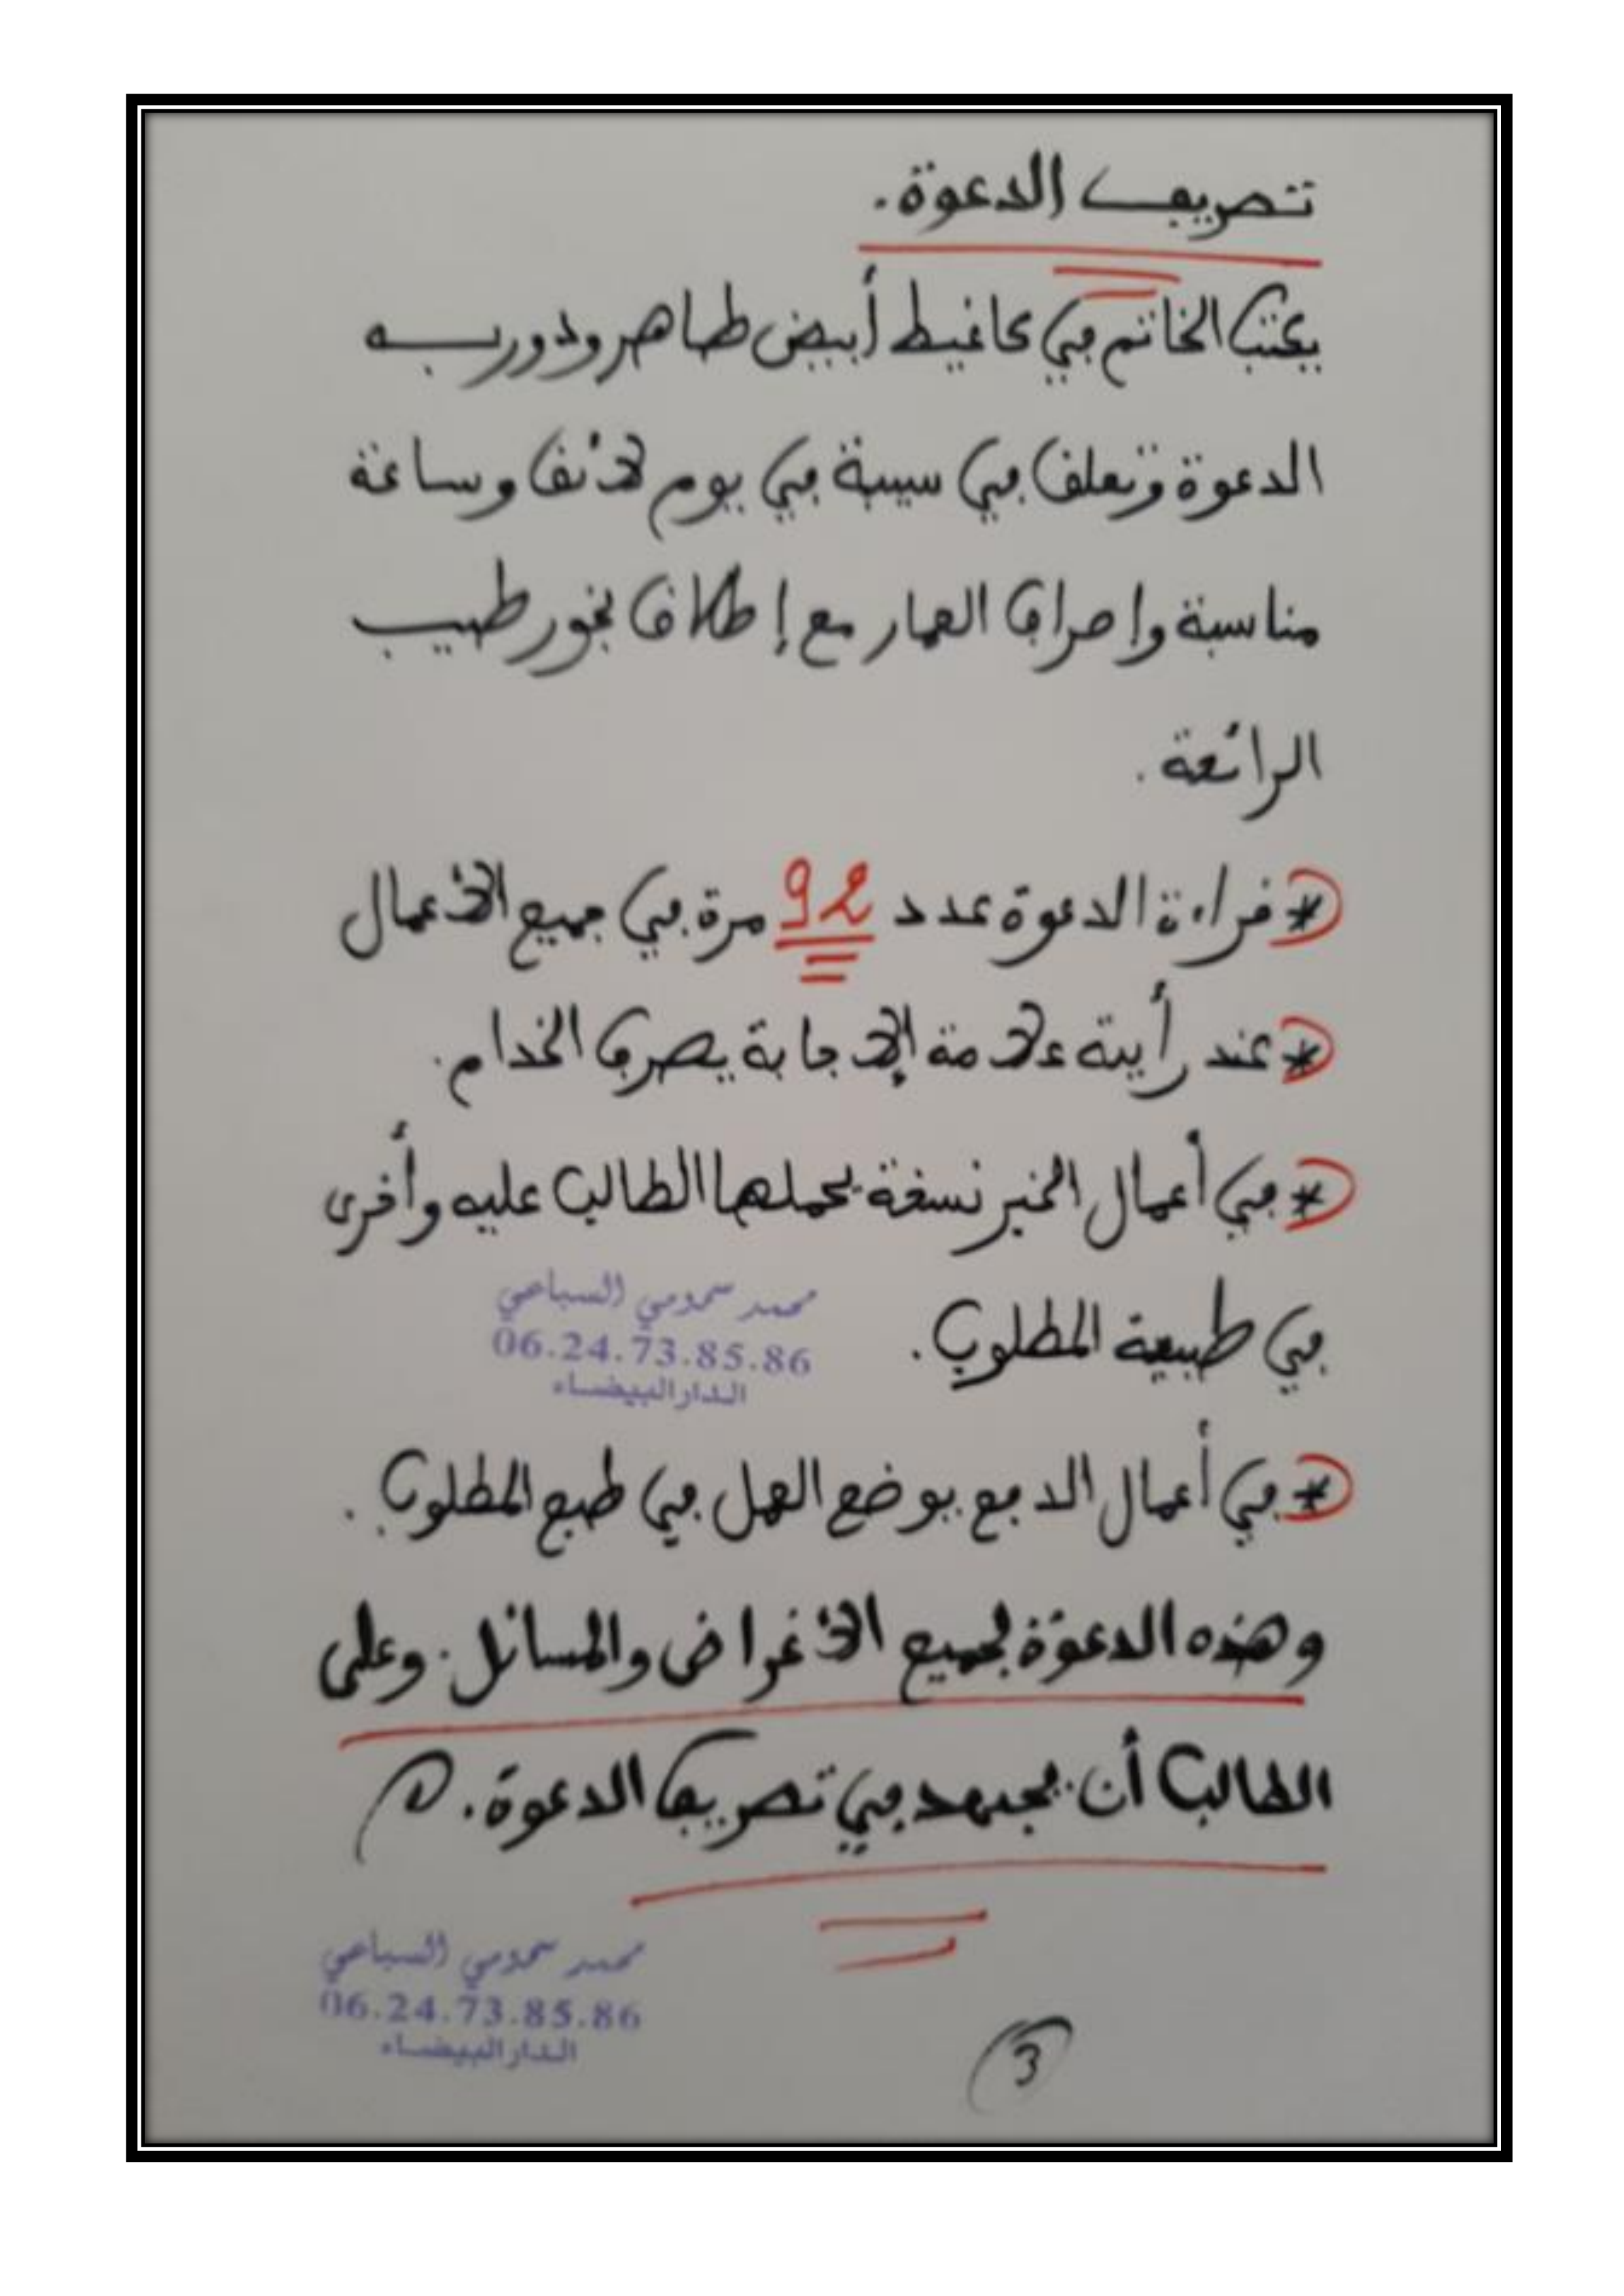 تصريف الدعوة.
يكتب الخاتم في كاغيط أبيض طاهر ودور به
الدعوة وتعلق في سيبة في يوم لائق وساعة
مناسبة وإصراف العمار مع إطلاق بخور طيب
الرائحة.
* قراءة الدعوة عدد 92 مرة في جميع الأعمال
* عند رأيته علامة الإجابة يصرف الخدام.
* في أعمال الخير نسخة يحملها الطالب عليه وأخرى
في طبيعة المطلوب.
محمد سمومي السباعي
06.24.73.85.86
الدار البيضاء
* في أعمال الدفع يوضع العمل في طبع المطلوب.
وهذه الدعوة لجميع الأغراض والمسائل. وعلى
الطالب أن يجتهد في تصريف الدعوة.
محمد سمومي السباعي
06.24.73.85.86
الدار البيضاء
3